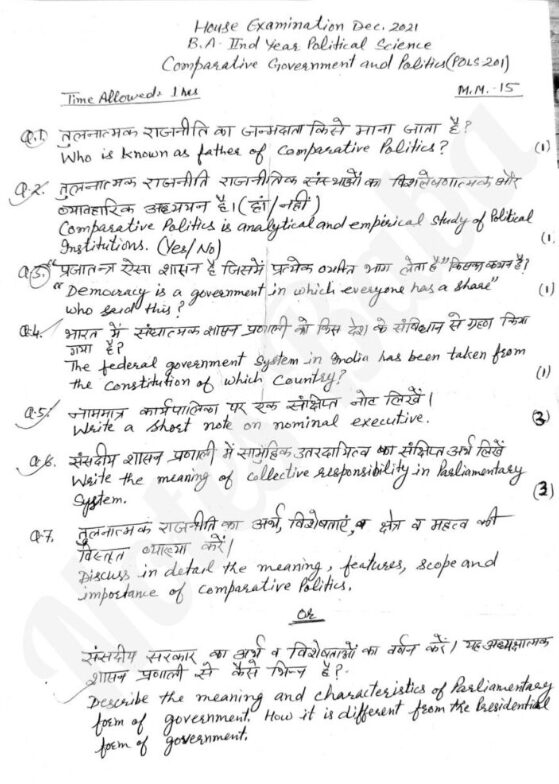 House Examination Dec. 2021
B.A. IInd Year Political Science
Comparative Government and Politics (POLS 201)
Time Allowed: 1 hrs M.M.-15
Q.1. तुलनात्मक राजनीति का जन्मदाता किसे माना जाता है?
Who is known as father of Comparative Politics? (1)
Q.2. तुलनात्मक राजनीति राजनीतिक संस्थाओं का विश्लेषणात्मक और
व्यावहारिक अध्ययन है। (हां/नहीं)
Comparative Politics is analytical and empirical study of Political
Institutions. (Yes/No) (1
Q.3. "प्रजातन्त्र ऐसा शासन है जिसमें प्रत्येक व्यक्ति भाग लेता है" किसका कथन है?
"Democracy is a government in which everyone has a share" (1)
who said this?
Q.4. भारत में संघात्मक शासन प्रणाली को किस देश के संविधान से ग्रहण किया
गया है?
The federal government System in India has been taken from
the constitution of which Country? (1)
Q.5. नाममात्र कार्यपालिका पर एक संक्षिप्त नोट लिखें।
Write a short note on nominal executive. (3)
Q.6. संसदीय शासन प्रणाली में सामूहिक उतरदायित्व का संक्षिप्त अर्थ लिखें
Write the meaning of collective responsibility in Parliamentary
System. (3)
Q.7. तुलनात्मक राजनीति का अर्थ, विशेषताएं, व क्षेत्र व महत्व की
विस्तृत व्याख्या करें।
Discuss in detail the meaning, features, scope and
importance of comparative Politics.
Or
संसदीय सरकार का अर्थ व विशेषताओं का वर्णन करें। यह अध्यक्षात्मक
शासन प्रणाली से कैसे भिन्न है?
Describe the meaning and characteristics of Parliamentary
form of government. How it is different from the Presidential
form of government.